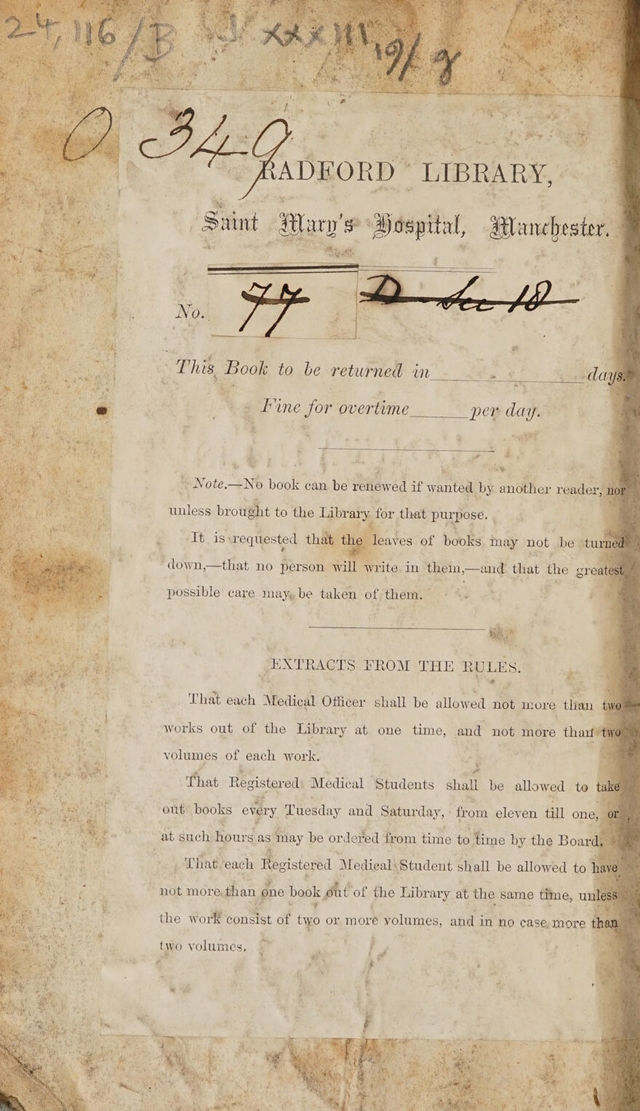 24,116/B J XXXIII, 19/g
0 349
RADFORD LIBRARY,
Saint Mary's Hospital, Manchester.
No. 77 D Sec 18
This Book to be returned in____________days.
Fine for overtime_____per day.
Note.—No book can be renewed if wanted by another reader, nor
unless brought to the Library for that purpose.
It is requested that the leaves of books may not be turned
down,—that no person will write in them,—and that the greatest
possible care may be taken of them.
EXTRACTS FROM THE RULES.
That each Medical Officer shall be allowed not more than two
works out of the Library at one time, and not more than two
volumes of each work.
That Registered Medical Students shall be allowed to take
out books every Tuesday and Saturday, from eleven till one, or
at such hours as may be ordered from time to time by the Board.
That each Registered Medical Student shall be allowed to have
not more than one book out of the Library at the same time, unless
the work consist of two or more volumes, and in no case more than
two volumes.